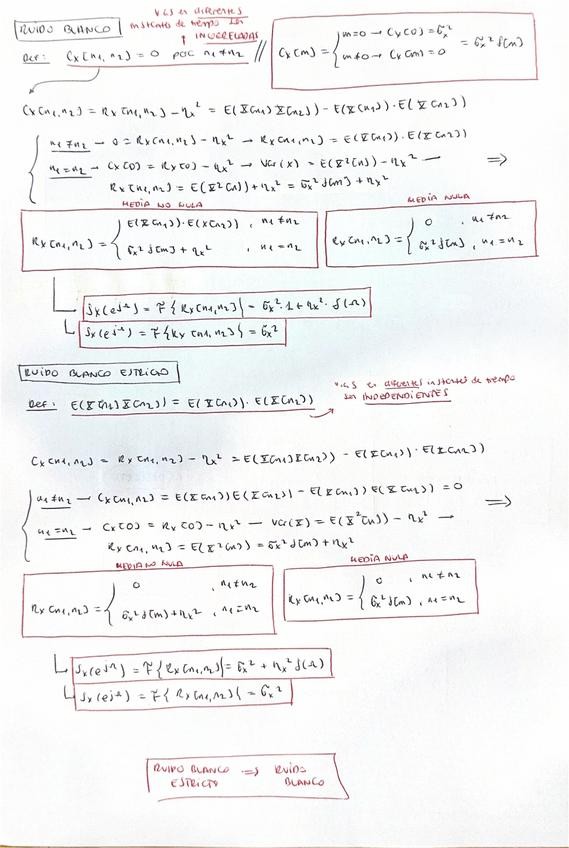 RUIDO BLANCO
V.G.S en diferentes
instantes de tiempo son
INCORRELADAS
Def: Cx[n1, n2] = 0 para n1 ≠ n2 //
Cx[m] = { m=0 → Cx[0] = σx²
m≠0 → Cx[m] = 0 = σx² δ[m]
Cx[n1, n2] = Rx[n1, n2] - ηx² = E(X[n1] X[n2]) - E(X[n1]) · E(X[n2])
n1 ≠ n2 → 0 = Rx[n1, n2] - ηx² → Rx[n1, n2] = E(X[n1]) · E(X[n2])
n1 = n2 → Cx[0] = Rx[0] - ηx² → Var(X) = E(X²[n]) - ηx² → ⇒
Rx[n1, n2] = E(X²[n]) + ηx² = σx² δ[m] + ηx²
MEDIA NO NULA
Rx[n1, n2] = { E(X[n1]) · E(X[n2]) , n1 ≠ n2
σx² δ[m] + ηx² , n1 = n2
MEDIA NULA
Rx[n1, n2] = { 0 , n1 ≠ n2
σx² δ[m] , n1 = n2
Sx(e^jΩ) = F{Rx[n1, n2]} = σx² · 1 + ηx² · δ(Ω)
Sx(e^jΩ) = F{Rx[n1, n2]} = σx²
RUIDO BLANCO ESTRICTO
V.G.S en diferentes instantes de tiempo
son INDEPENDIENTES
Def: E(X[n1] X[n2]) = E(X[n1]) · E(X[n2])
Cx[n1, n2] = Rx[n1, n2] - ηx² = E(X[n1] X[n2]) - E(X[n1]) · E(X[n2])
n1 ≠ n2 → Cx[n1, n2] = E(X[n1]) E(X[n2]) - E(X[n1]) E(X[n2]) = 0
n1 = n2 → Cx[0] = Rx[0] - ηx² → Var(X) = E(X²[n]) - ηx² → ⇒
Rx[n1, n2] = E(X²[n]) = σx² δ[m] + ηx²
MEDIA NO NULA
Rx[n1, n2] = { 0 , n1 ≠ n2
σx² δ[m] + ηx² , n1 = n2
MEDIA NULA
Rx[n1, n2] = { 0 , n1 ≠ n2
σx² δ[m] , n1 = n2
Sx(e^jΩ) = F{Rx[n1, n2]} = σx² + ηx² δ(Ω)
Sx(e^jΩ) = F{Rx[n1, n2]} = σx²
RUIDO BLANCO ESTRICTO ⇒ RUIDO BLANCO